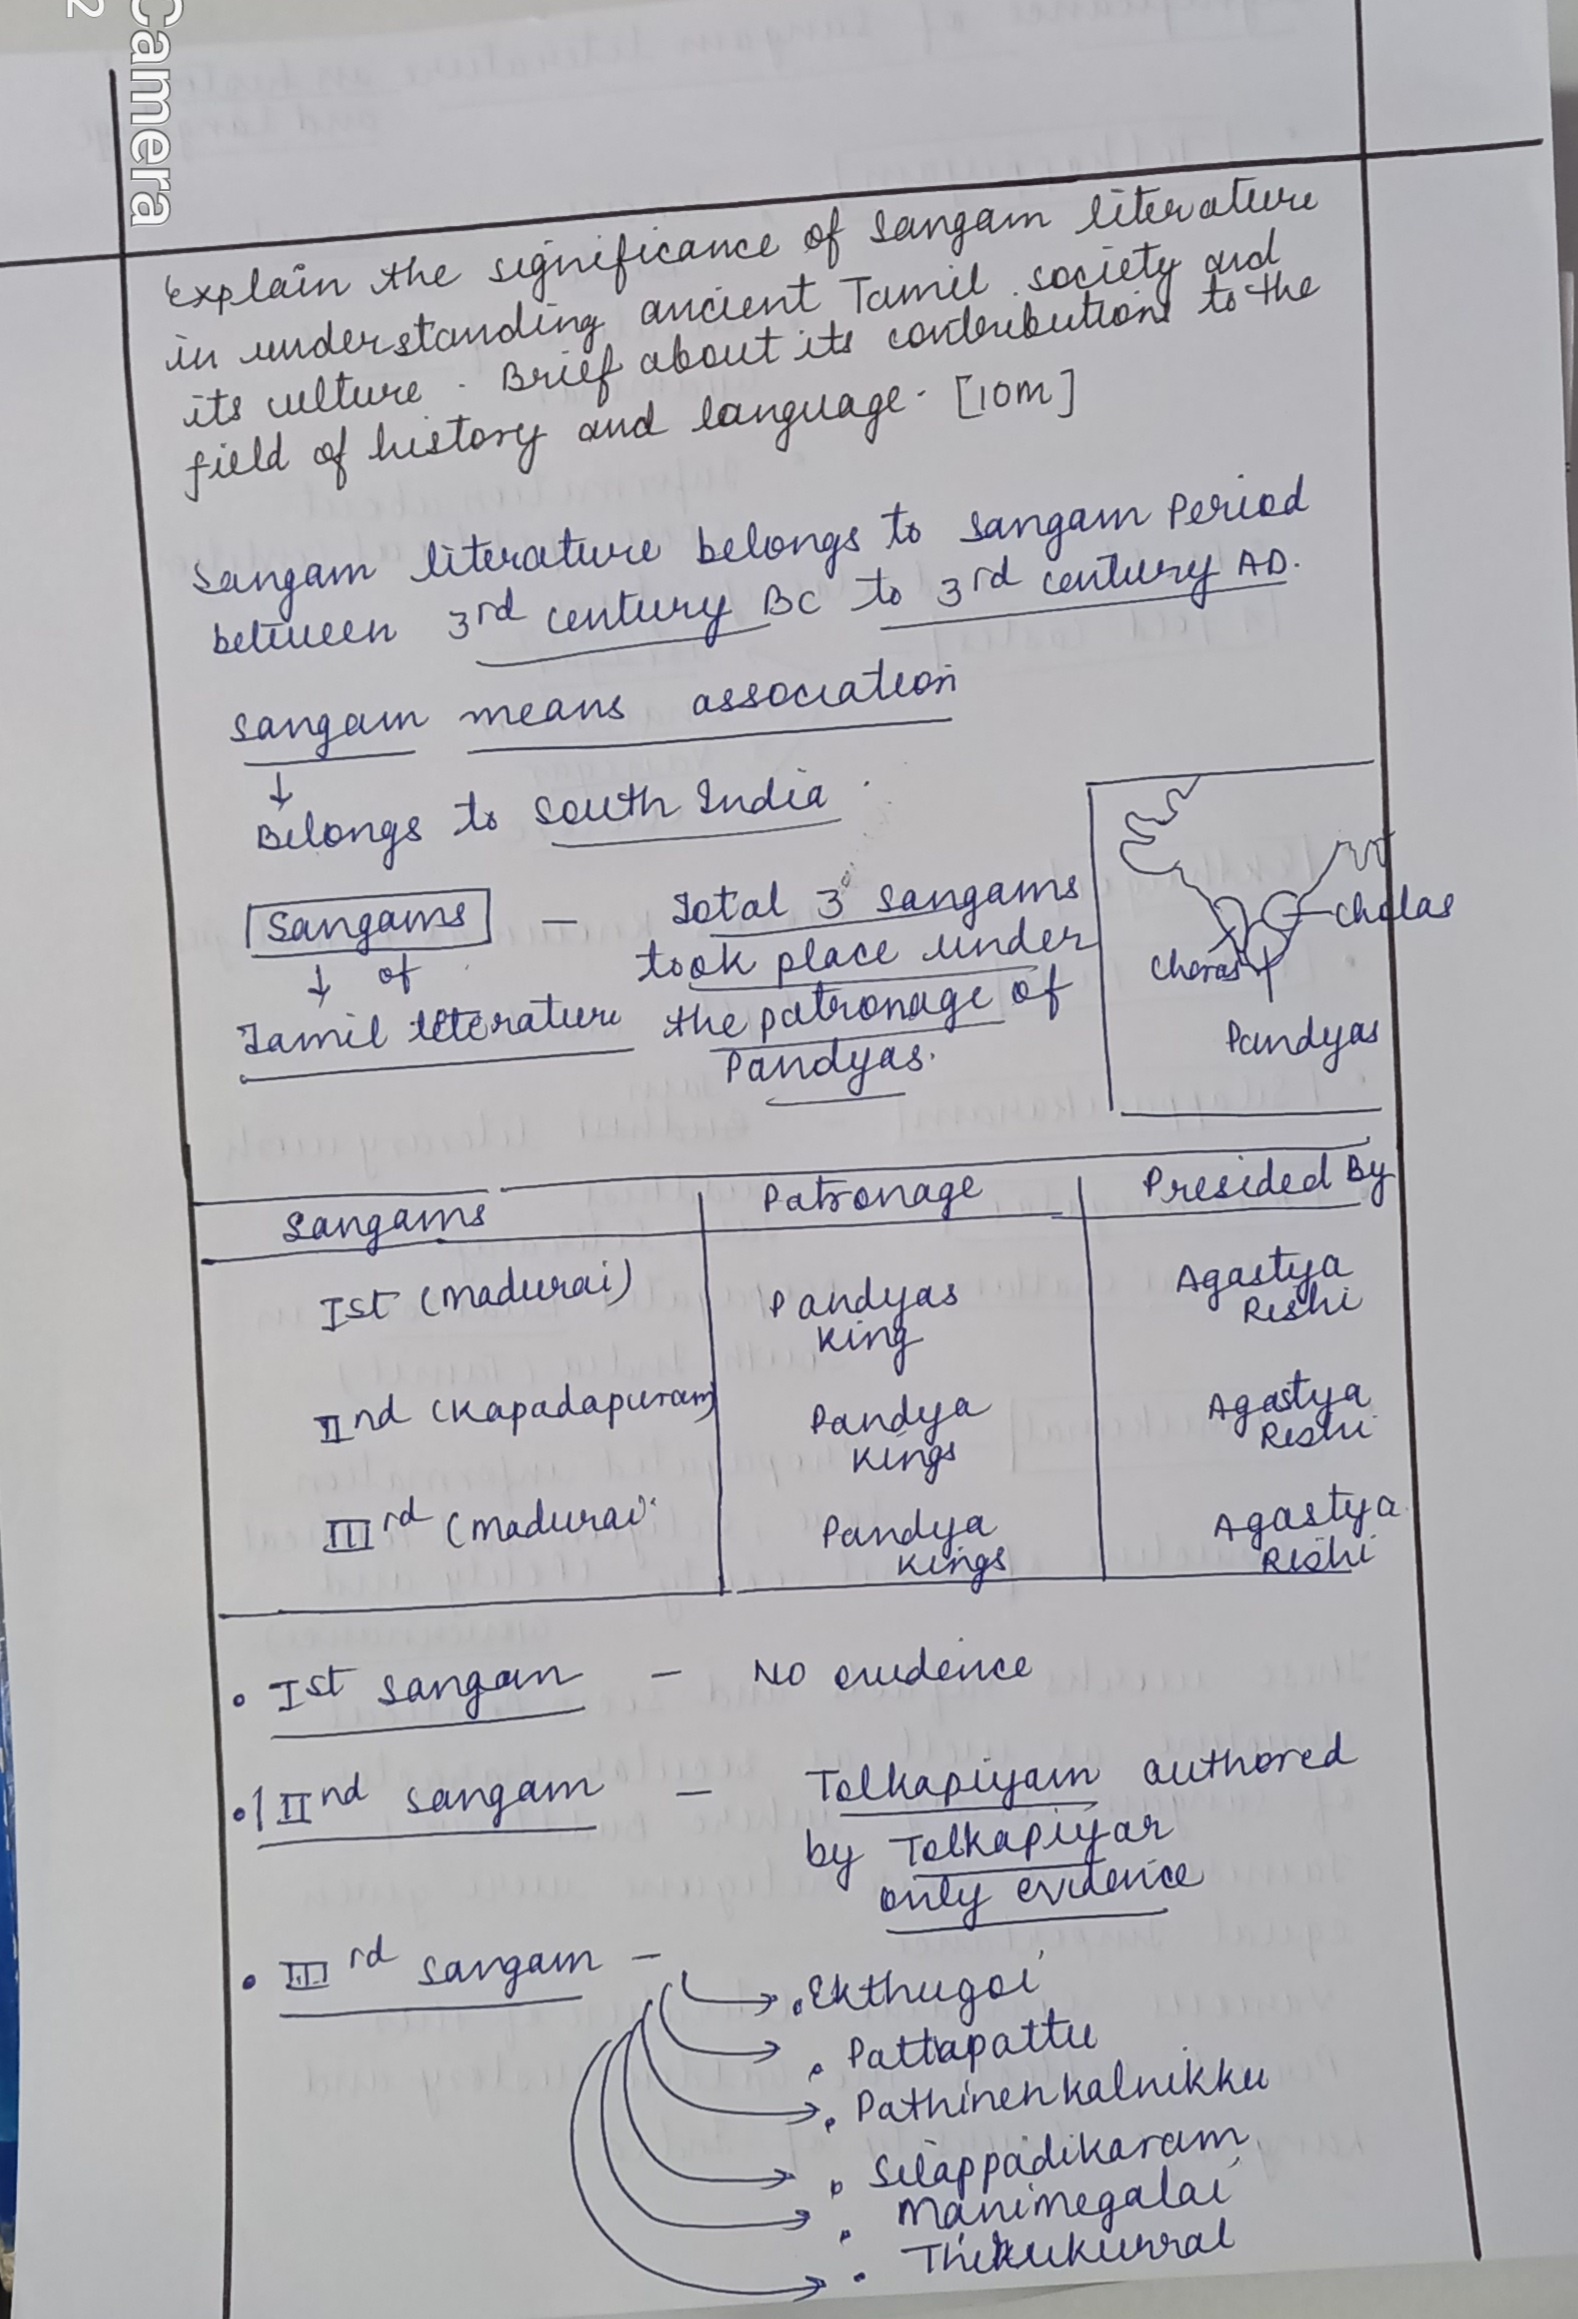 Camera
2
Explain the significance of Sangam literature
in understanding ancient Tamil society and
its culture. Brief about its contributions to the
field of history and language. [10M]
Sangam literature belongs to Sangam Period
between 3rd century BC to 3rd century AD.
Sangam means association
↓
Belongs to South India
Sangams – Total 3 Sangams
↓ of took place under
Tamil literature the patronage of
Pandyas.
Cholas
Cheras
Pandyas
Sangams Patronage Presided By
Ist (Madurai) Pandyas King Agastya Rishi
IInd (Kapadapuram) Pandya Kings Agastya Rishi
IIIrd (Madurai) Pandya Kings Agastya Rishi
• Ist Sangam – No evidence
• IInd Sangam – Tolkapiyam authored
by Tolkapiyar
only evidence
• IIIrd Sangam –
• Ekthugoi
• Pattapattu
• Pathinenkalnikku
• Silappadikaram
• Manimegalai
• Thirukurral